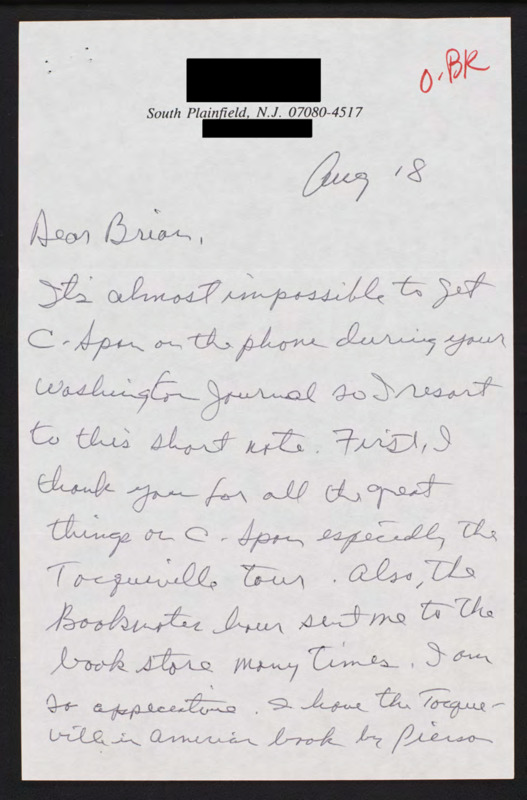 O-BK
South Plainfield, N.J. 07080-4517
Aug 18
Dear Brian,
It's almost impossible to get
C-Span on the phone during your
Washington Journal so I resort
to this short note. First, I
thank you for all the great
things on C-Span especially the
Tocqueville Tour. Also, the
Booknotes hour sent me to the
book store many times. I am
so appreciative. I have the Tocque-
ville in America book by Pierson